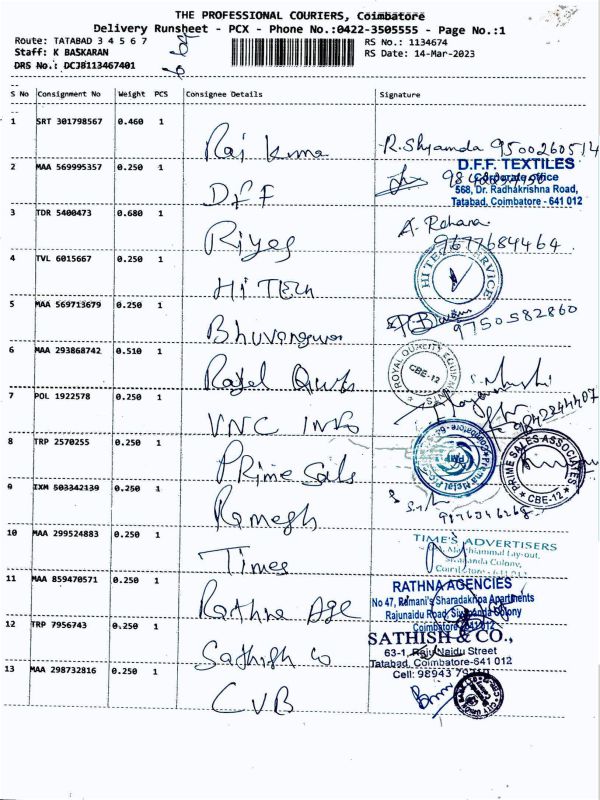 THE PROFESSIONAL COURIERS, Coimbatore
Delivery Runsheet - PCX - Phone No.:0422-3505555 - Page No.:1
Route: TATABAD 3 4 5 6 7 RS No.: 1134674
Staff: K BASKARAN RS Date: 14-Mar-2023
DRS No.: DCJ8113467401
S No Consignment No Weight PCS Consignee Details Signature
1 SRT 301798567 0.460 1 Raj Kuma R. Shyamda 9500260514
2 MAA 569995357 0.250 1 DFF
D.F.F. TEXTILES
Corporate office
568, Dr. Radhakrishna Road,
Tatabad, Coimbatore - 641 012
3 TDR 5400473 0.680 1 Riyas A. Rehana
9677684464
4 TVL 6015667 0.250 1 Hi TECH
HI TECH SERVICE
5 MAA 569713679 0.250 1 Bhuvaneswari 9750582860
6 MAA 293868742 0.510 1 Royal Quality
ROYAL QUALITY EQUIPMENTS
CBE-12
7 POL 1922578 0.250 1 VNC INFO 9842244407
8 TRP 2570255 0.250 1 Prime Sales
PRIME SALES ASSOCIATES
CBE-12
9 IXM 503342139 0.250 1 Ramesh
10 MAA 299524883 0.250 1 Times
TIME'S ADVERTISERS
11 MAA 859470571 0.250 1 Rathna Age
RATHNA AGENCIES
No 47, Ramani's Sharadakripa Apartments
Rajunaidu Road, Sivananda Colony
Coimbatore - 641 012
12 TRP 7956743 0.250 1 Sathish Co
SATHISH & CO.,
63-1, Raju Naidu Street
Tatabad, Coimbatore-641 012
Cell: 98943
13 MAA 298732816 0.250 1 CVB